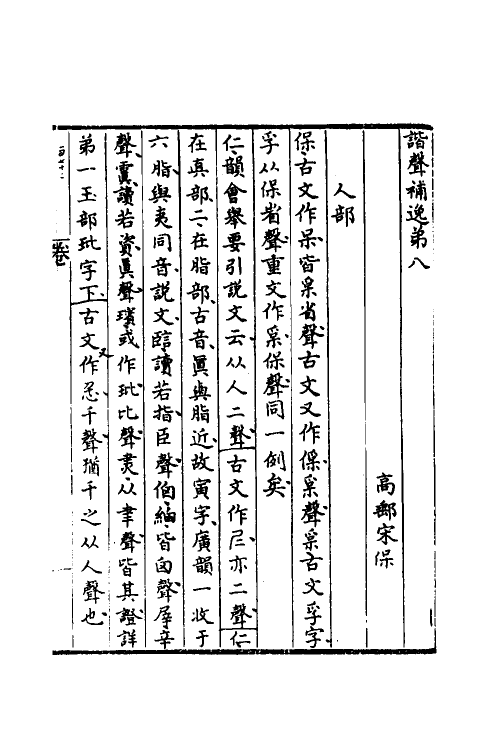 諧聲補逸弟八
高郵宋保
人部
保古文作𠈃皆𤓽省聲古文又作保𤓽聲𤓽古文孚字
孚从保省聲重文作𤓽保聲同一例矣
仁韻會舉要引說文云从人二聲古文作𡰥亦二聲仁
在真部二在脂部古音眞與脂近故寅字廣韻一收于
六脂與夷同音說文䭫讀若指臣聲伯紬皆囟聲屖辛
聲䨷讀若資眞聲璸或作玭比聲䁖从聿聲皆其證詳
弟一玉部玭字下古文又作忎千聲猶千之从人聲也
卷